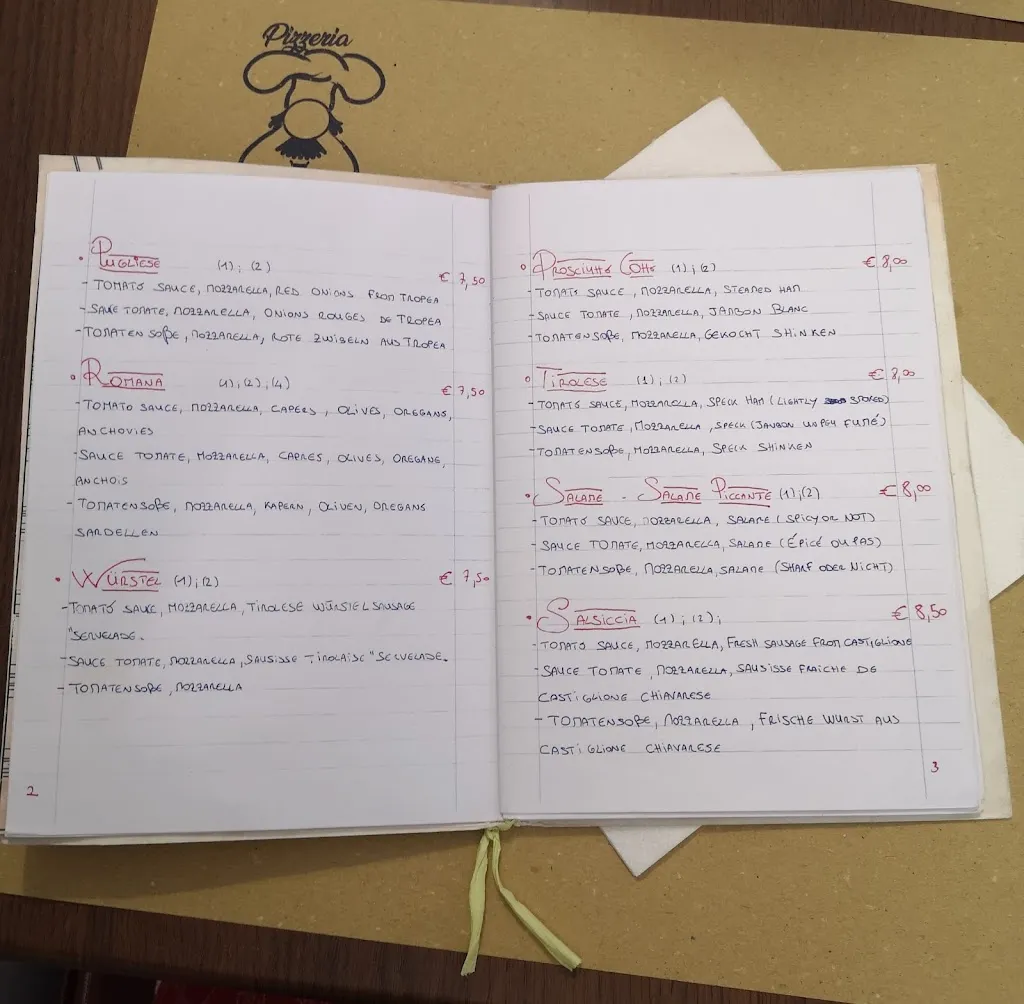 Pizzeria
• PUGLIESE (1); (2) € 7,50
- TOMATO SAUCE, MOZZARELLA, RED ONIONS FROM TROPEA
- SAUCE TOMATE, MOZZARELLA, ONIONS ROUGES DE TROPEA
- TOMATENSOßE, MOZZARELLA, ROTE ZWIBELN AUS TROPEA
• ROMANA (1); (2); (4) € 7,50
- TOMATO SAUCE, MOZZARELLA, CAPERS, OLIVES, OREGANO,
ANCHOVIES
- SAUCE TOMATE, MOZZARELLA, CAPRES, OLIVES, OREGANE,
ANCHOIS
- TOMATENSOßE, MOZZARELLA, KAPERN, OLIVEN, OREGANO
SARDELLEN
• WÜRSTEL (1); (2) € 7,50
- TOMATO SAUCE, MOZZARELLA, TIROLESE WÜRSTEL SAUSAGE
"SERVELADE.
- SAUCE TOMATE, MOZZARELLA, SAUSISSE TIROLAISE "SERVELADE.
- TOMATENSOßE, MOZZARELLA
2
• PROSCIUTTO COTTO (1); (2) € 8,00
- TOMATO SAUCE, MOZZARELLA, STEAMED HAM
- SAUCE TOMATE, MOZZARELLA, JANBON BLANC
- TOMATENSOßE, MOZZARELLA, GEKOCHT SHINKEN
• TIROLESE (1); (2) € 8,00
- TOMATO SAUCE, MOZZARELLA, SPECK HAM (LIGHTLY SMOKED)
- SAUCE TOMATE, MOZZARELLA, SPECK (JANBON UN PEU FUMÉ)
- TOMATENSOßE, MOZZARELLA, SPECK SHINKEN
• SALAME - SALAME PICCANTE (1); (2) € 8,00
- TOMATO SAUCE, MOZZARELLA, SALAME (SPICY OR NOT)
- SAUCE TOMATE, MOZZARELLA, SALAME (ÉPICÉ OU PAS)
- TOMATENSOßE, MOZZARELLA, SALAME (SHARF ODER NICHT)
• SALSICCIA (1); (2); € 8,50
- TOMATO SAUCE, MOZZARELLA, FRESH SAUSAGE FROM CASTIGLIONE
- SAUCE TOMATE, MOZZARELLA, SAUSISSE FRAICHE DE
CASTIGLIONE CHIAVARESE
- TOMATENSOßE, MOZZARELLA, FRISCHE WURST AUS
CASTIGLIONE CHIAVARESE
3